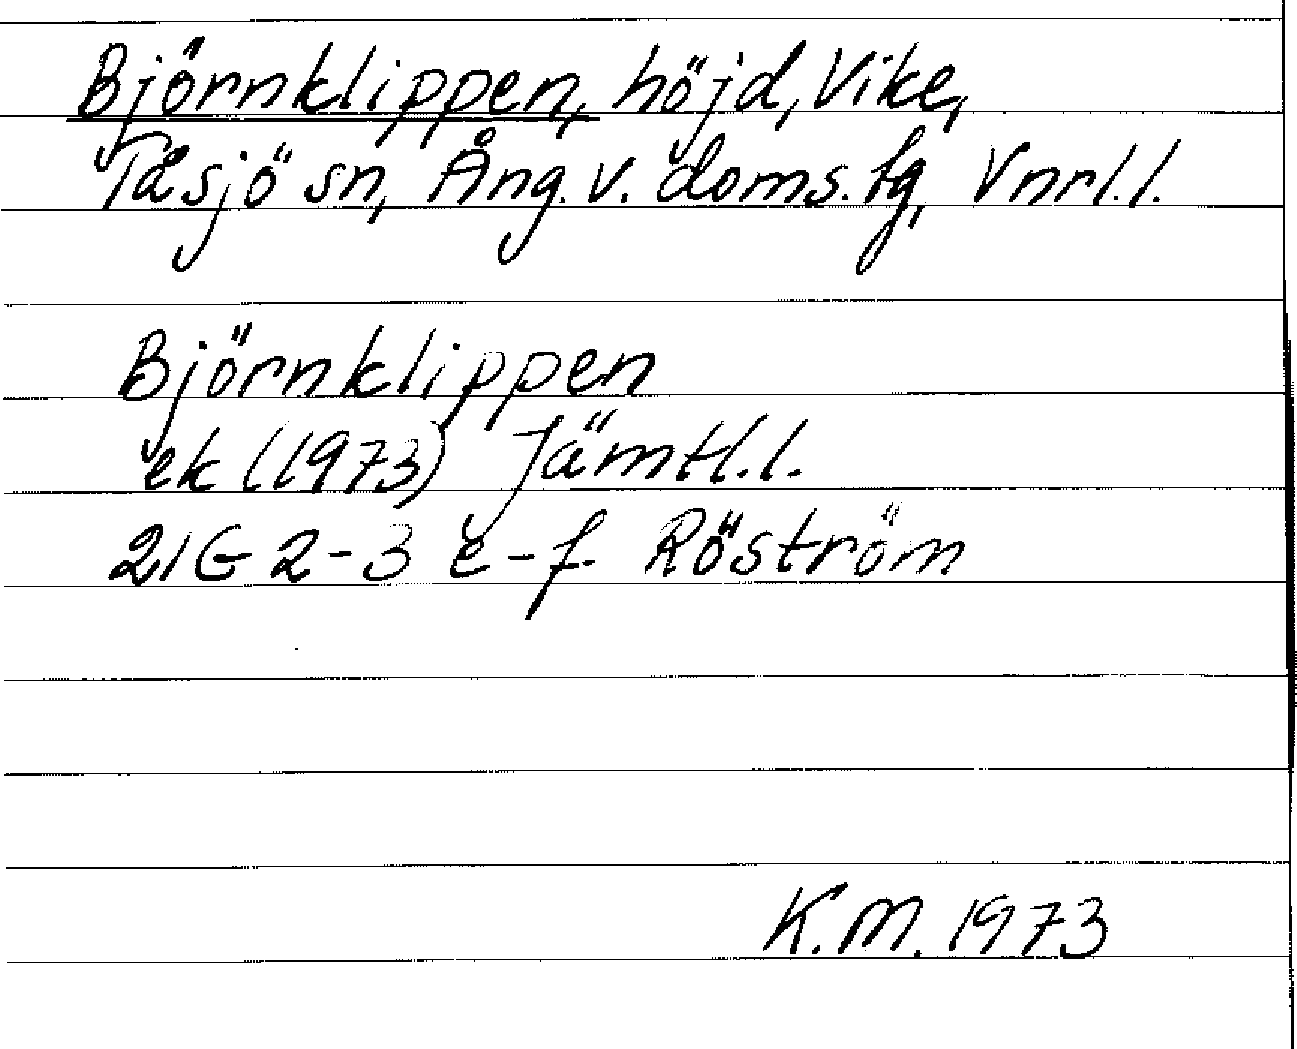 Björnklippen, höjd, Vike,
Tåsjö sn, Ång. v. doms. lg, Vnrl. l.
Björnklippen
ek (1973) Jämtl. l.
21G 2-3 e-f. Röström
K.M. 1973